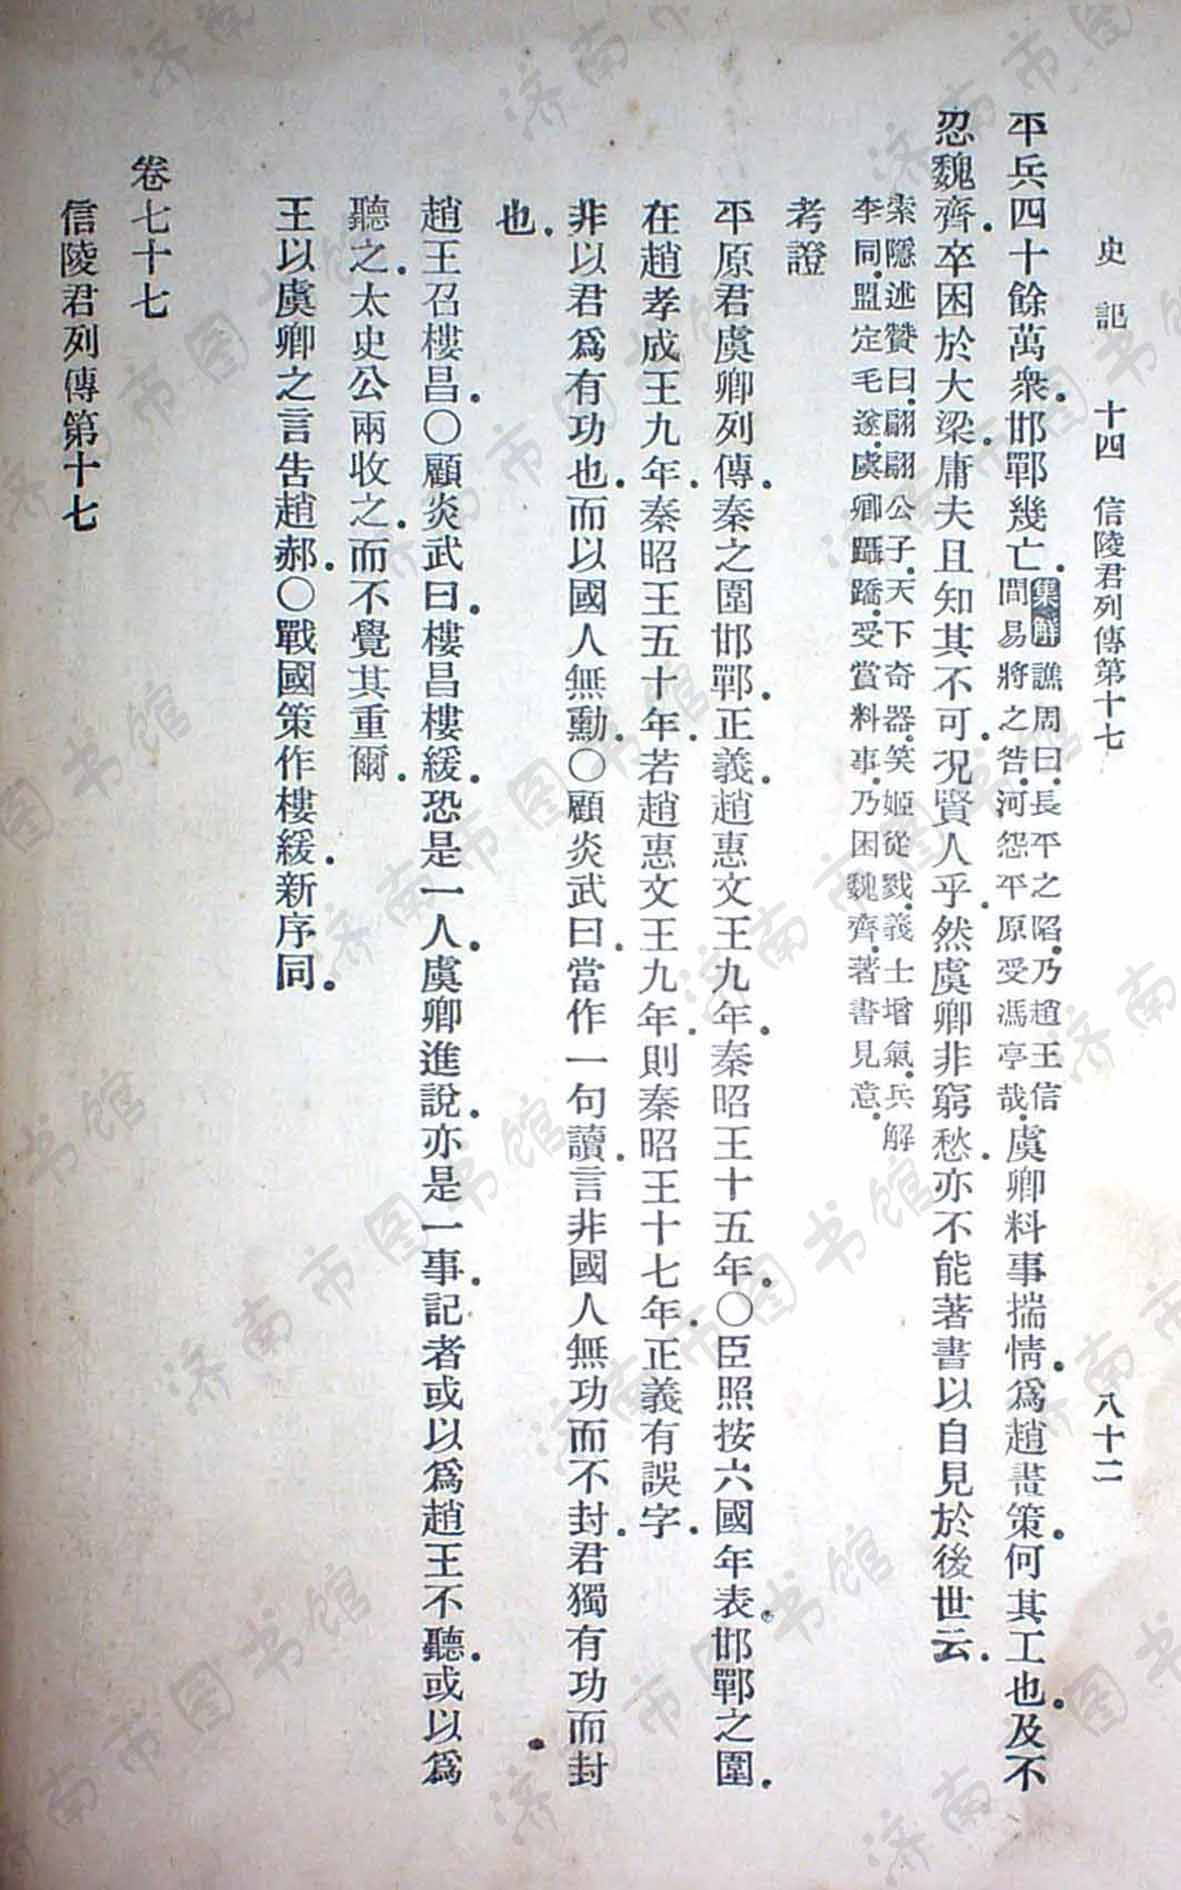 史記 十四 信陵君列傳第十七 八十二
平兵四十餘萬衆.邯鄲幾亡.集解譙周曰.長平之陷.乃趙王信
間易將之咎.河怨平原受馮亭哉.虞卿料事揣情.爲趙畫策.何其工也.及不
忍魏齊.卒困於大梁.庸夫且知其不可.况賢人乎.然虞卿非窮愁.亦不能著書以自見於後世云.
索隱述贊曰.翩翩公子.天下奇器.笑姬從戮.義士增氣.兵解
李同.盟定毛遂.虞卿躡蹻.受賞料事.乃困魏齊.著書見意.
考證
平原君虞卿列傳.秦之圍邯鄲.正義.趙惠文王九年.秦昭王十五年.〇臣照按六國年表.邯鄲之圍.
在趙孝成王九年.秦昭王五十年.若趙惠文王九年.則秦昭王十七年.正義有誤字.
非以君爲有功也.而以國人無勳.〇顧炎武曰.當作一句讀.言非國人無功而不封.君獨有功而封
也.
趙王召樓昌.〇顧炎武曰.樓昌樓緩.恐是一人.虞卿進說.亦是一事.記者或以爲趙王不聽.或以爲
聽之.太史公兩收之.而不覺其重爾.
王以虞卿之言告趙郝.〇戰國策作樓緩.新序同.
卷七十七
信陵君列傳第十七
济南市图书馆